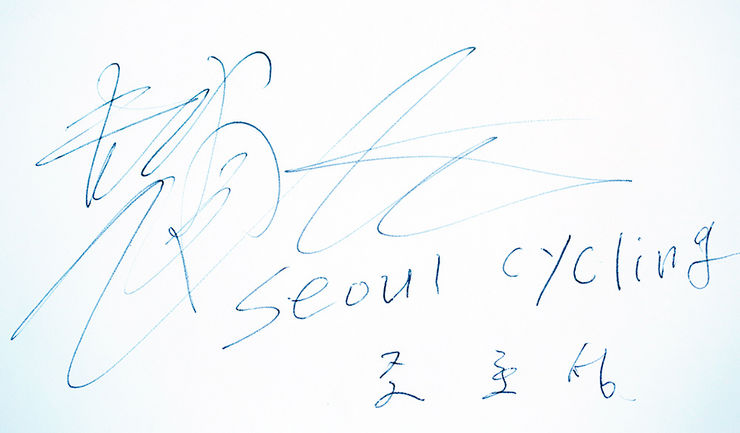 seoul cycling
조 호 성